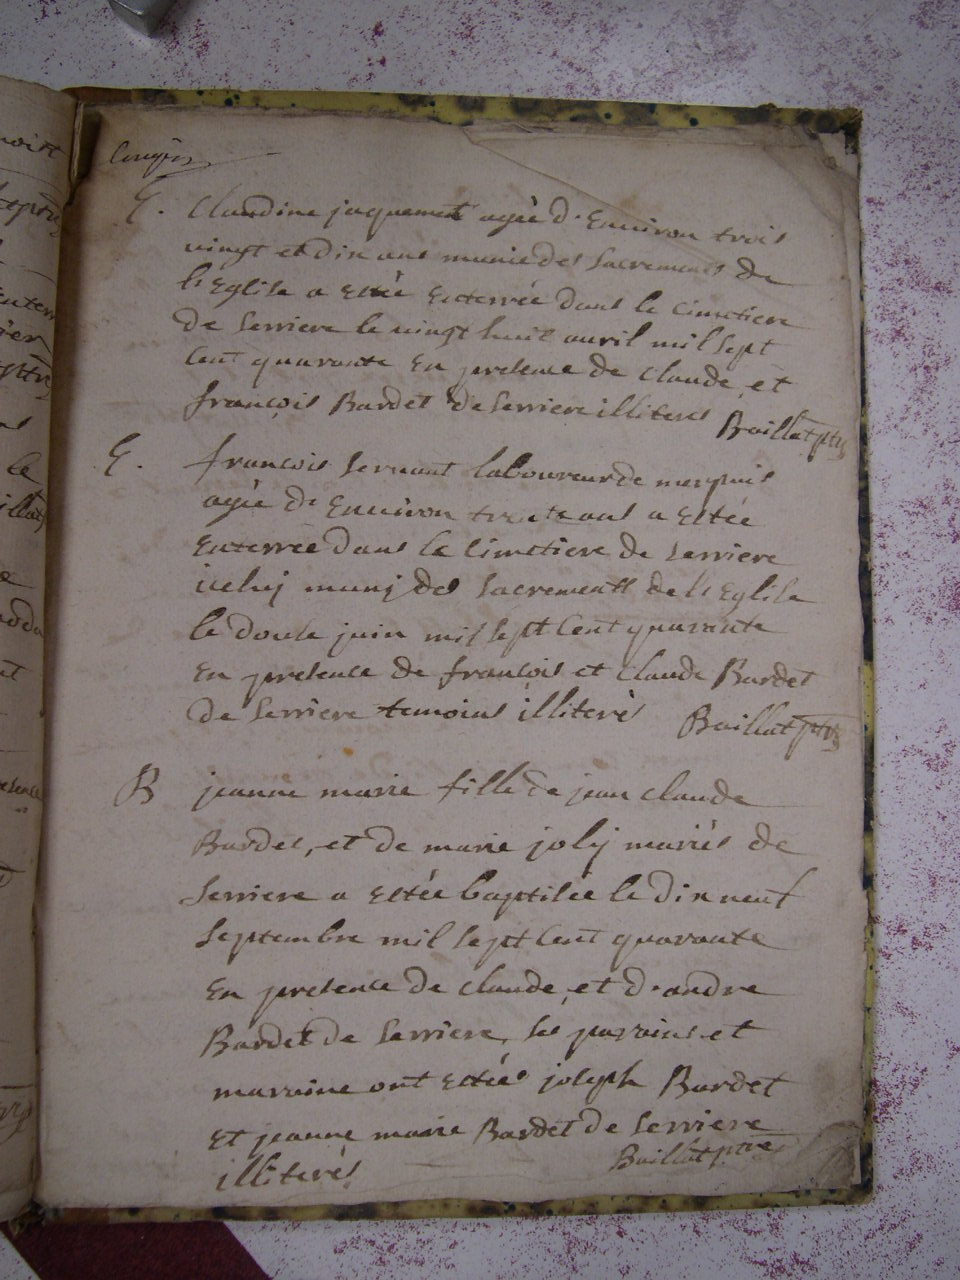 Corugios
E. Claudine jaquemet agée d'Environ trois
vingt et dix ans munie des Sacrements de
l'Eglise a estée Enterrée dans le Cimetiere
de Serriere le vingt huit avril mil sept
Cent quarante En presence de Claude et
françois Bardet de Serriere illiteres Baillat ptre
E. françois Servant laboureur de merpuis
agée d'Environ trente ans a Estée
Enterrée dans le Cimetiere de Serriere
icelui muni des Sacrements de l'Eglise
le douse juin mil sept Cent quarante
En presence de françois et Claude Bardet
de Serriere temoins illiterés Baillat ptre
B jeanne marie fille de jean claude
Bardet, et de marie joly mariés de
Serriere a Estée baptisée le dix neuf
Septembre mil sept Cent quarante
En presence de claude, et d'andre
Bardet de Serriere, les parains et
maraine ont Estées joseph Bardet
Et jeanne marie Bardet de Serriere
illiterés Baillat ptre